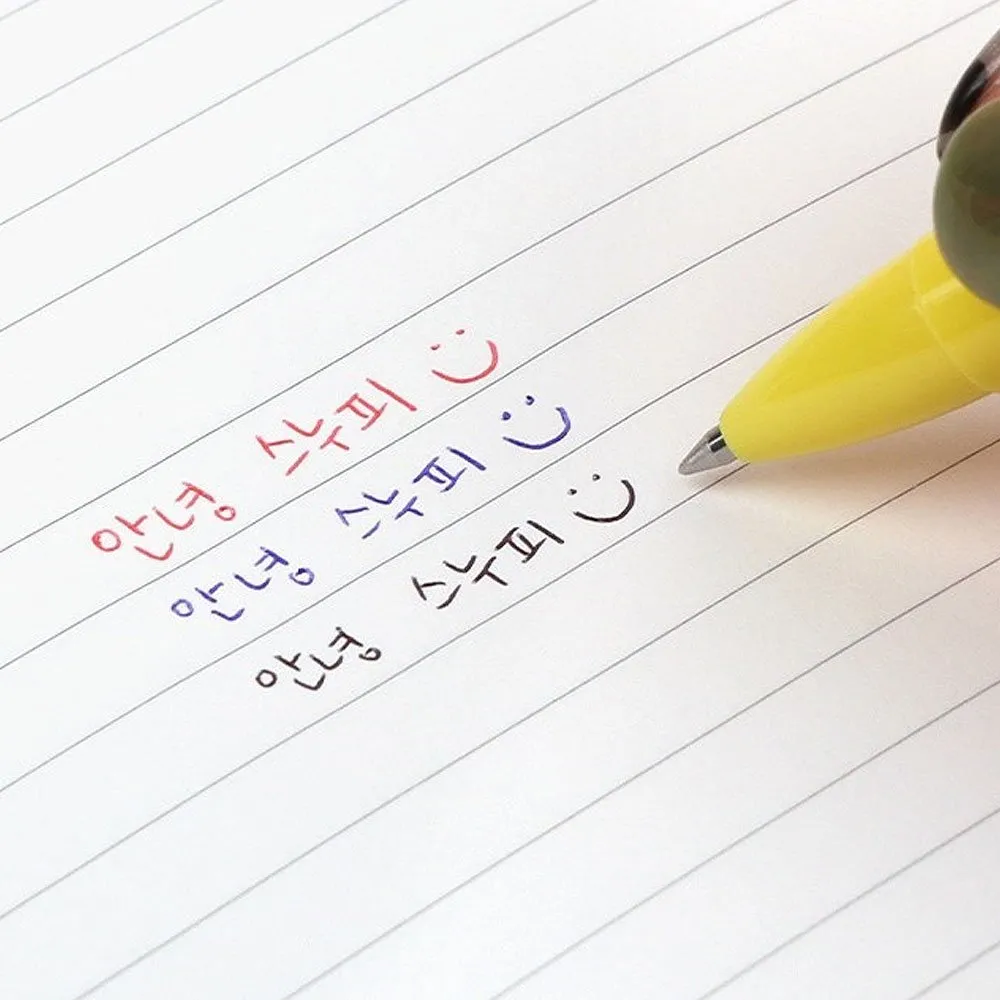 안녕 스누피 :)
안녕 스누피 :)
안녕 스누피 :)